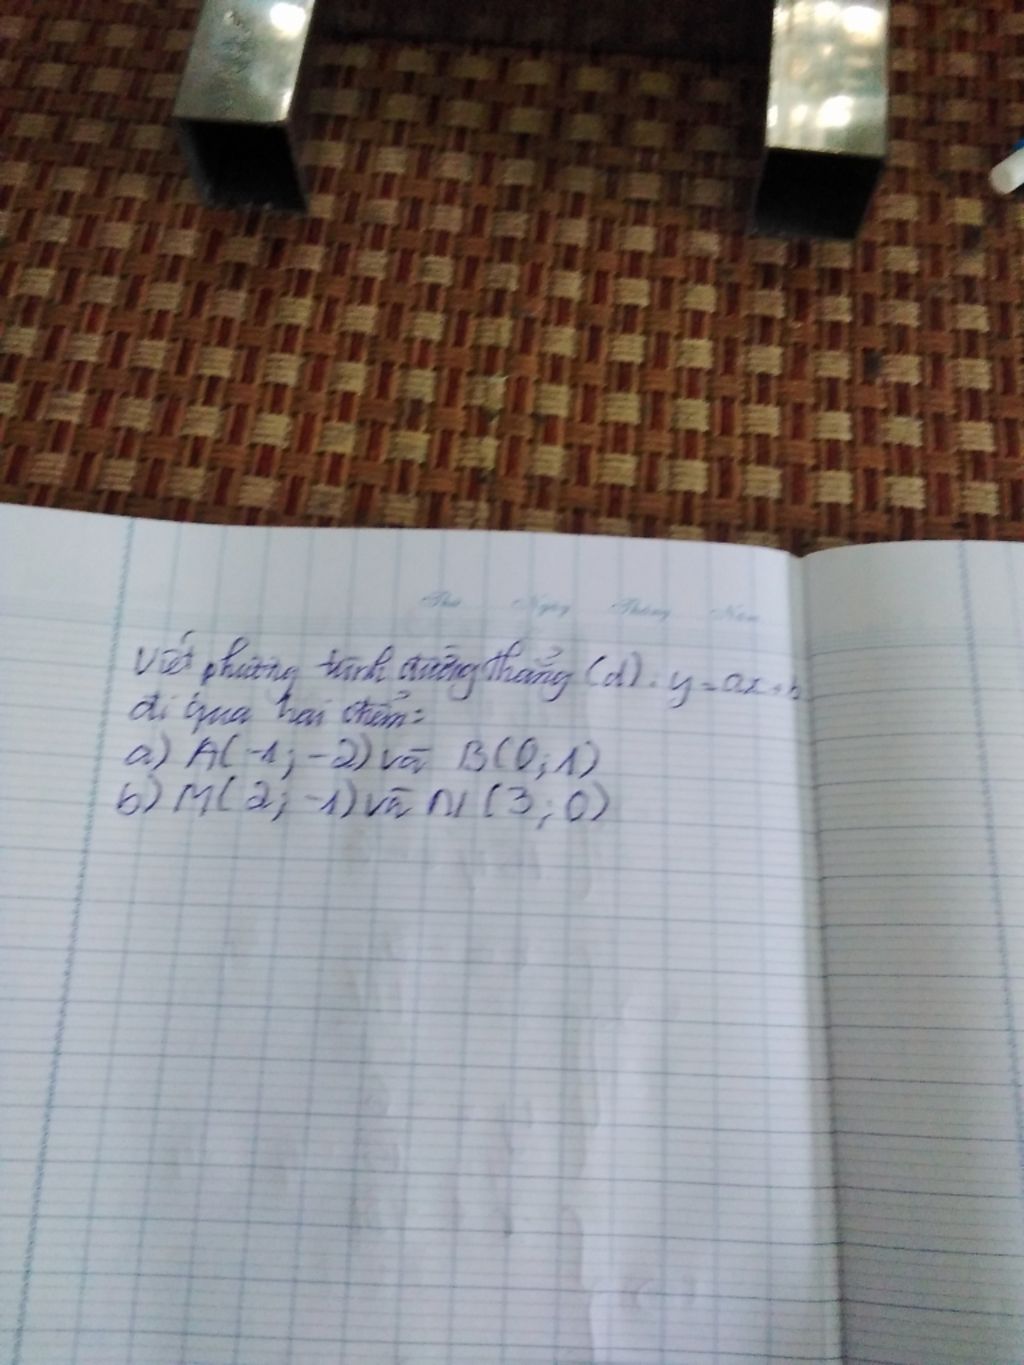 Thứ Ngày Tháng Năm
Viết phương trình đường thẳng (d): y=ax+b
đi qua hai điểm:
a) A(-1;-2) và B(0;1)
b) M(2;-1) và N(3;0)